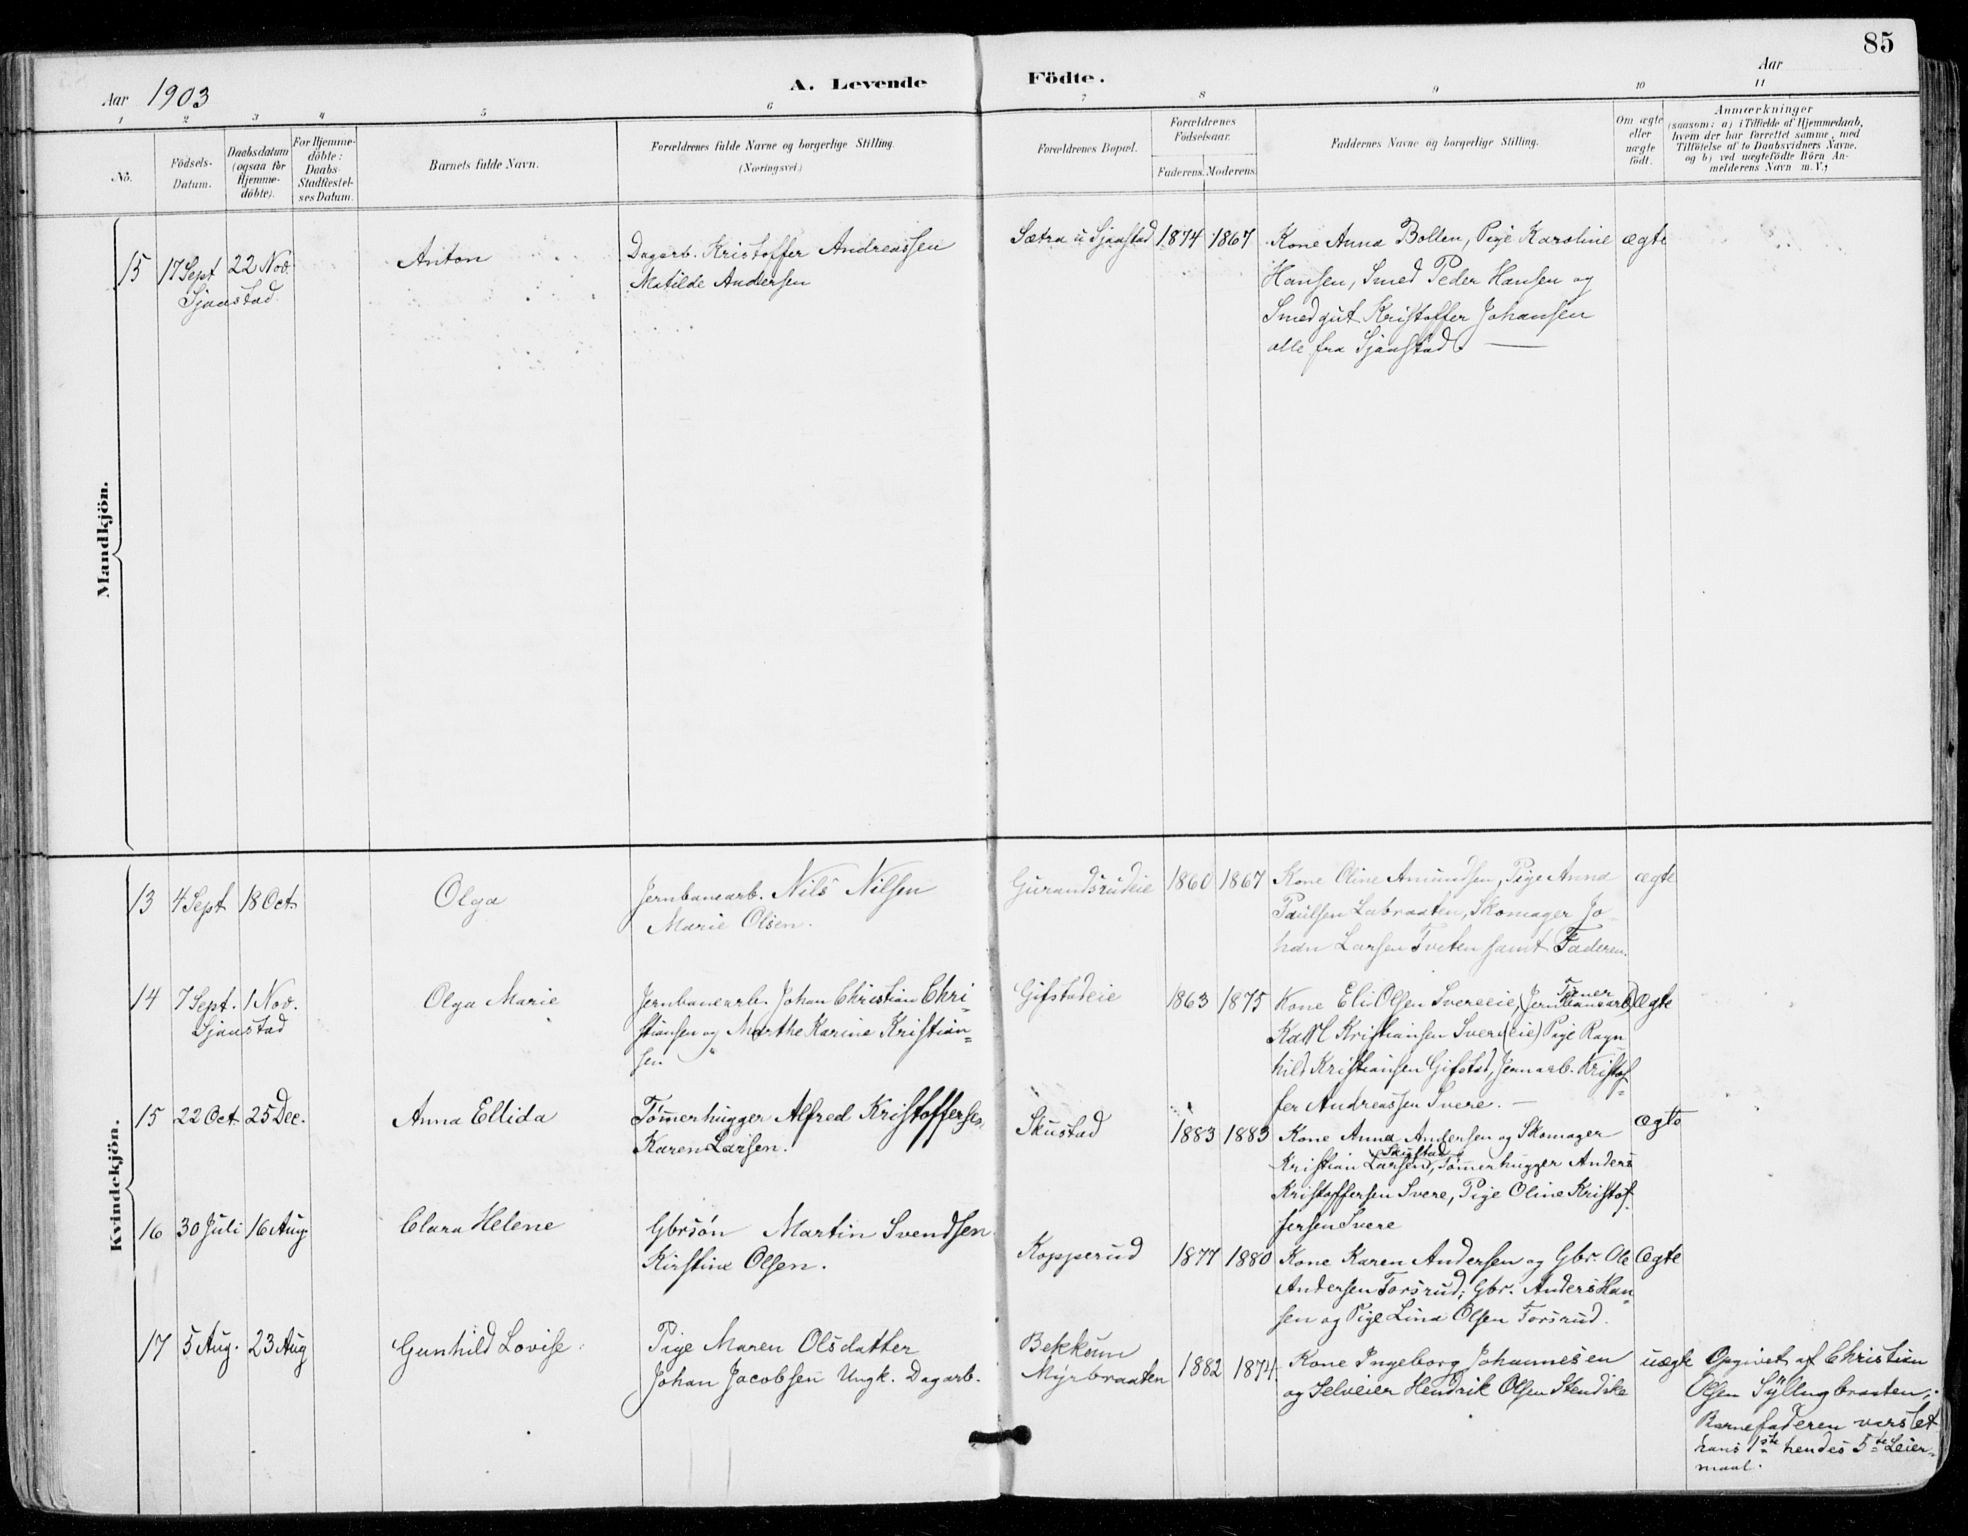 85
Aar 1903
A. Levende Födte.
Aar
1 2 3 4 5 6 7 8 9 10 11
No.
Födsels-Datum.
Daabsdatum (ogsaa for Hjemme-döbte).
For Hjemme-döbte: Daabs-Stadfæstel-ses Datum.
Barnets fulde Navn.
Forældrenes fulde Navne og borgerlige Stilling.
(Næringsvei.)
Forældrenes Bopæl.
Forældrenes Födselsaar.
Faderens. Moderens.
Faddernes Navne og borgerlige Stilling.
Om ægte eller uægte födt.
Anmærkninger
(saasom: a) i Tilfælde af Hjemmedaab,
hvem der har forrettet samme, med
Tilföielse af to Daabsvidners Navne,
og b) ved uægtefödte Börn An-
melderens Navn m. V.)
Mandkjön.
15 17 Sept 22 Nov. Anton Dagarb. Kristoffer Andreassen Sætra u Sjaastad 1874 1867 Kone Anna Bollen, Pige Karoline ægte
Sjaastad Matilde Andersen Hansen, Smed Peder Hansen og
Smedgut Kristoffer Johansen
alle fra Sjaastad.
Kvindekjön.
13 4 Sept 18 Oct. Olga Jernbanearb. Nils Nilsen Gurandsrudeie 1860 1867 Kone Oline Amundsen, Pige Anna ægte
Marie Olsen. Paulsen Labraaten, Skomager Jo-
han Larsen Tveten samt Faderen.
14 7 Sept. 1 Nov. Olga Marie Jernbanearb. Johan Christian Chri- Gifstadeie 1863 1875 Kone Eli Olsen Svereeie, Jernbanearb. ægte
Sjaastad stiansen og Marthe Karine Kristian- Karl Kristiansen Svere(eie) Pige Ragn
sen hild Kristiansen Gifstad, Jernarb. Kristof-
fer Andreassen Svere.
15 22 Oct. 25 Dec. Anna Ellida Tømerhugger Alfred Kristoffersen Skustad 1883 1883 Kone Anna Andersen og Skomager ægte
Karen Larsen. Kristian Larsen Skustad, Tømerhugger Anders
Kristoffersen Svere, Pige Oline Kristof-
fersen Svere
16 30 Juli 16 Aug. Clara Helene Gbrsøn Martin Svendsen Kopperud 1877 1880 Kone Karen Andersen og Gbr. Ole Ægte
Kirstine Olsen. Andersen Torsrud; Gbr. Anders Han-
sen og Pige Lina Olsen Torsrud.
17 5 Aug. 23 Aug Gunhild Lovise Pige Maren Olsdatter Bekkum
Johan Jacobsen Ungk. Dagarb. Myrbraaten 1882 1874 Kone Ingeborg Johannesen uægte Opgivet af Christian
og Selveier Hendrik Olsen Stendike Olsen Syllingbraaten.
Barnefaderen vars let
hans 1ste hendes 5te Leier-
maal.